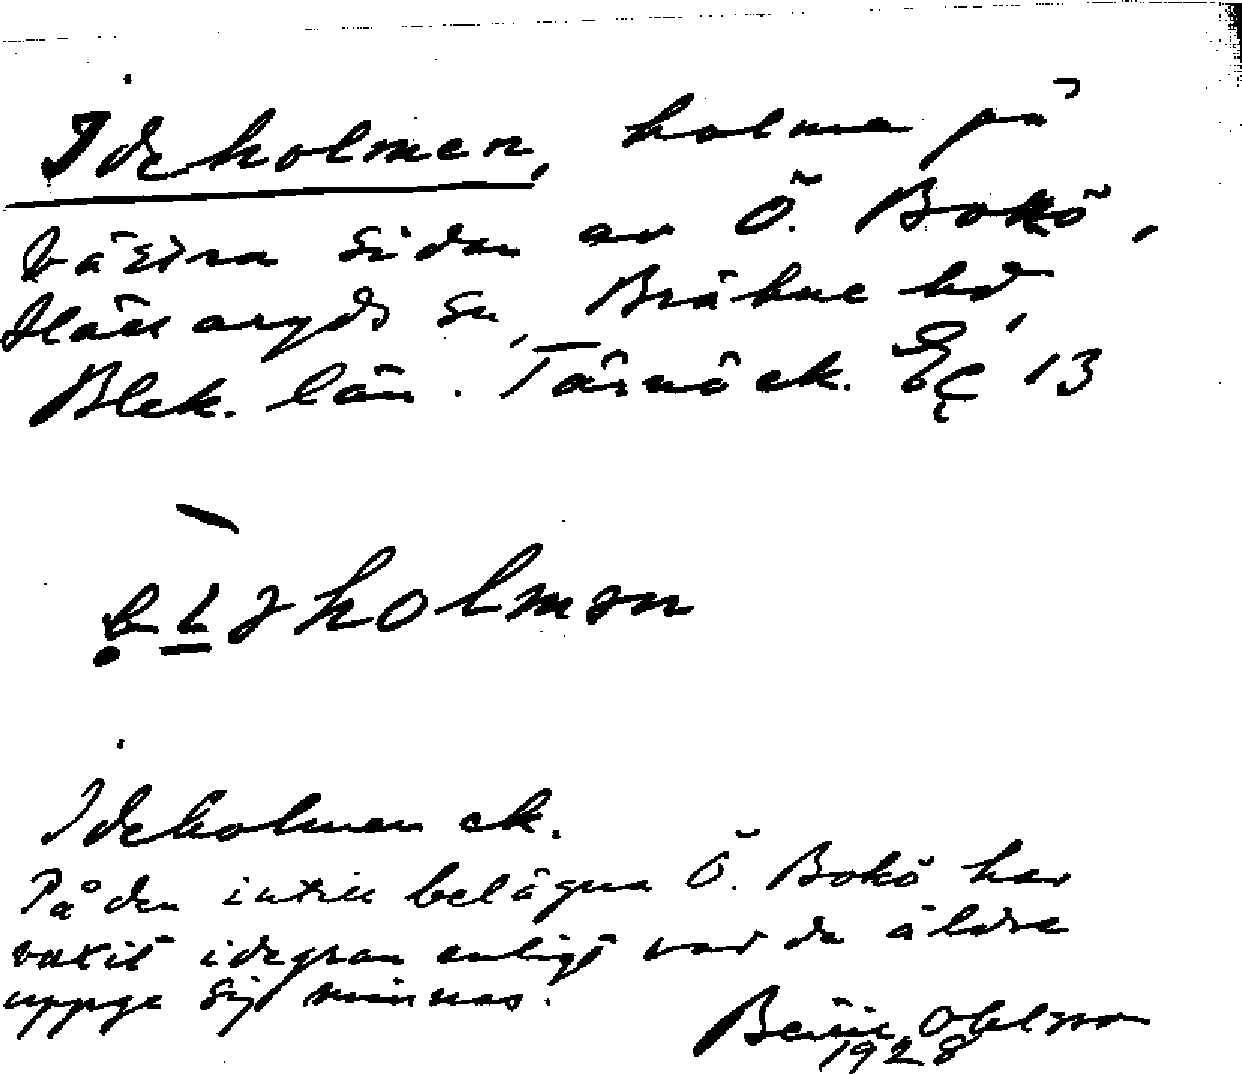 Ideholmen, holme på
västra sidan av Ö. Bokö,
Hällaryds sn, Bräkne hd,
Blek. län. Tärnö ek. 13
Ideholmen ek.
På den intill belägna Ö. Bokö har
vaxit idegran enligt vad de äldre
uppge sig minnas.
Ohlsson
1928